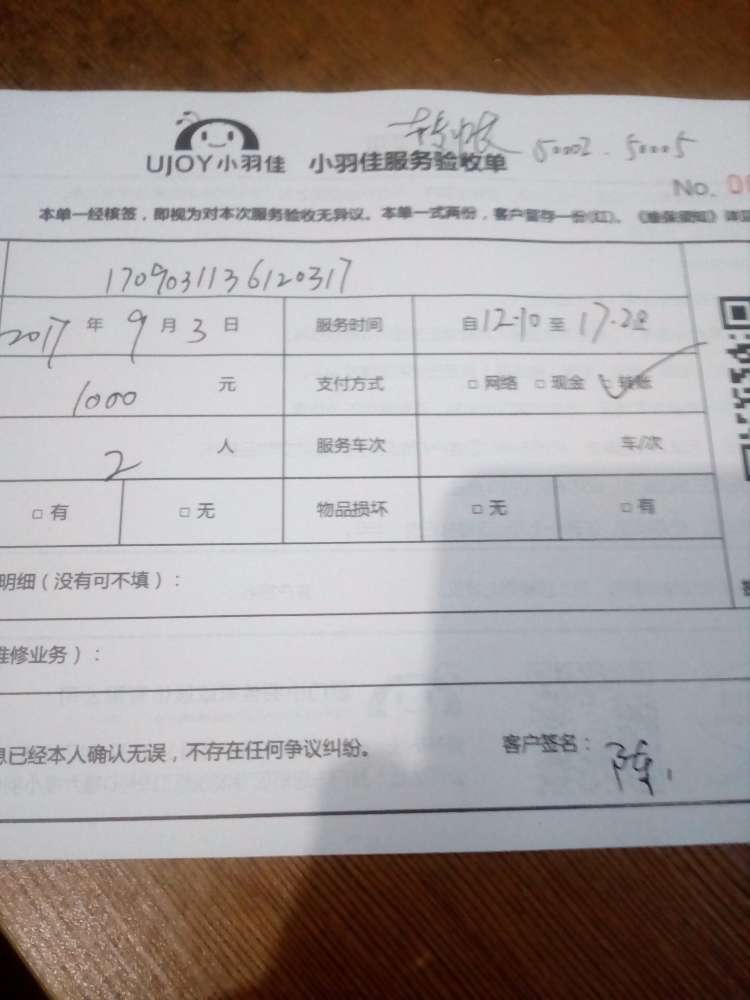 转帐 50002. 50005
UJOY小羽佳 小羽佳服务验收单
No. 0
本单一经核签，即视为对本次服务验收无异议。本单一式两份，客户留存一份(红)。《维保须知》详见
1709031136120317
2017 年 9 月 3 日 服务时间 自 12.10 至 17.20
1000 元 支付方式 □ 网络 □ 现金 ✓ 转账
2 人 服务车次 车/次
□ 有 □ 无 物品损坏 □ 无 □ 有
明细（没有可不填）：
维修业务）：
息已经本人确认无误，不存在任何争议纠纷。 客户签名： 陈